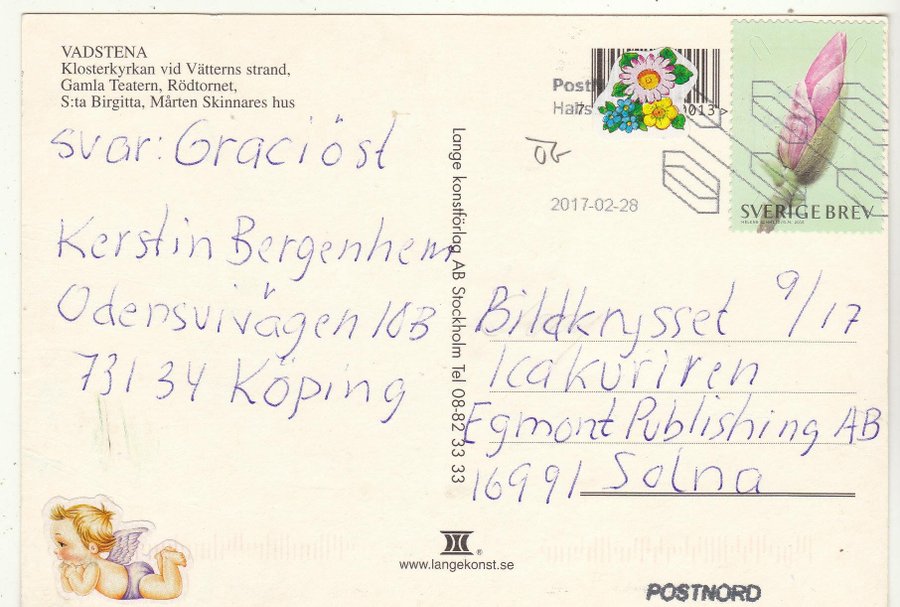 VADSTENA
Klosterkyrkan vid Vätterns strand,
Gamla Teatern, Rödtornet,
S:ta Birgitta, Mårten Skinnares hus
svar: Graciöst
Kerstin Bergenhem
Odensvivägen 10B
731 34 Köping
Lange konstförlag AB Stockholm Tel 08-82 33 33
2017-02-28
SVERIGE BREV
Bildkrysset 9/17
Icakuriren
Egmont Publishing AB
16991 Solna
www.langekonst.se
POSTNORD